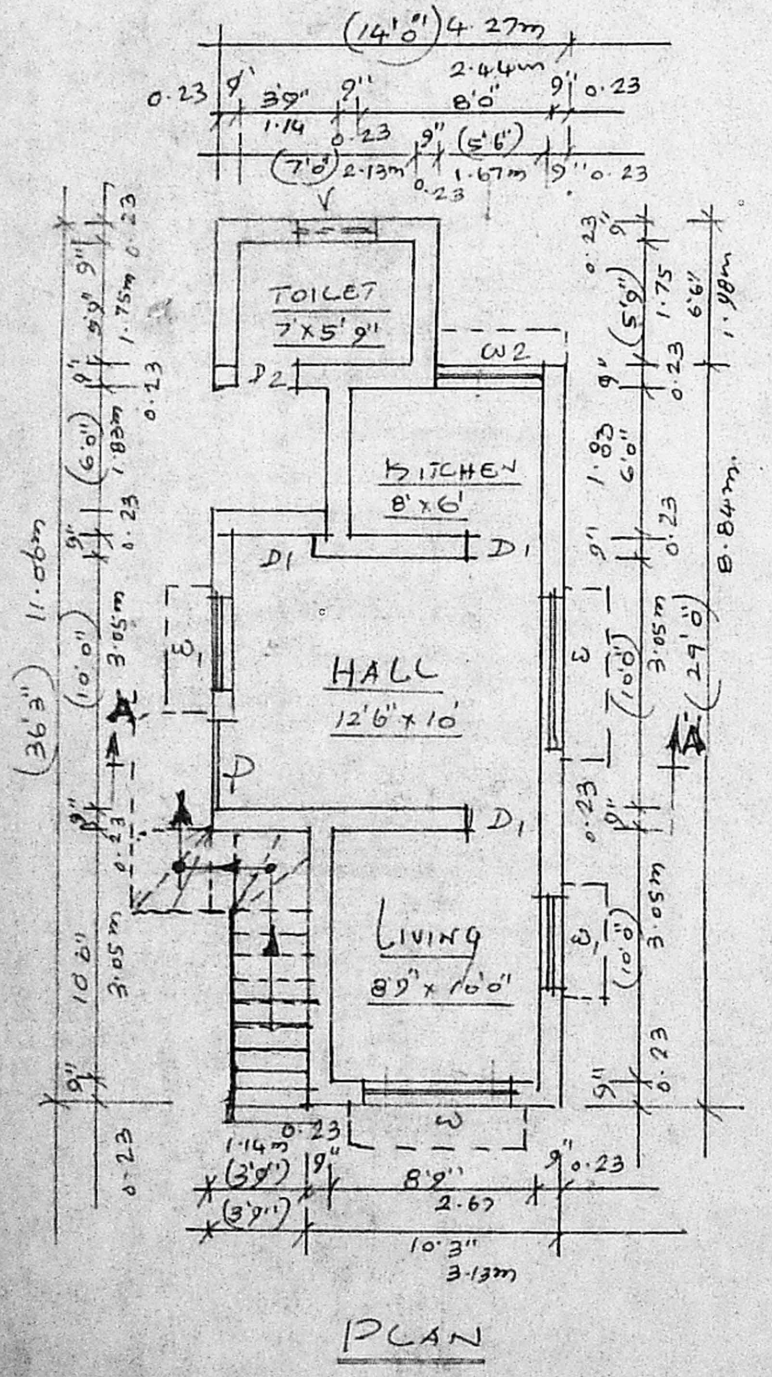 (14'0") 4.27m
2.44m
0.23 9" 3'9" 9" 8'0" 9" 0.23
1.14 0.23 9" (5'6")
(7'0") 2.13m 0.23 1.67m 9" 0.23
TOILET
7'x5'9"
W2
D2
KITCHEN
8'x6'
D1 D1
HALL
12'6"x10'
W1
W
D
D1
LIVING
8'9"x10'0"
W1
W
A
A'
(36'3") 11.06m
9" 5'9" 9" (6'0") 9" (10'0") 9" 10'0" 9"
0.23 1.75m 0.23 1.83m 0.23 3.05m 0.23 3.05m 0.23
0.23 9"
(5'9") 1.75
6'6" 1.98m
9" 0.23
1.83 6'0"
9" 0.23
(10'0") 3.05m
(29'0") 8.84m
0.23 9"
(10'0") 3.05m
9" 0.23
1.14m 0.23
(3'9") 9" 8'9" 9" 0.23
2.67
(3'9")
10'3"
3.13m
PLAN